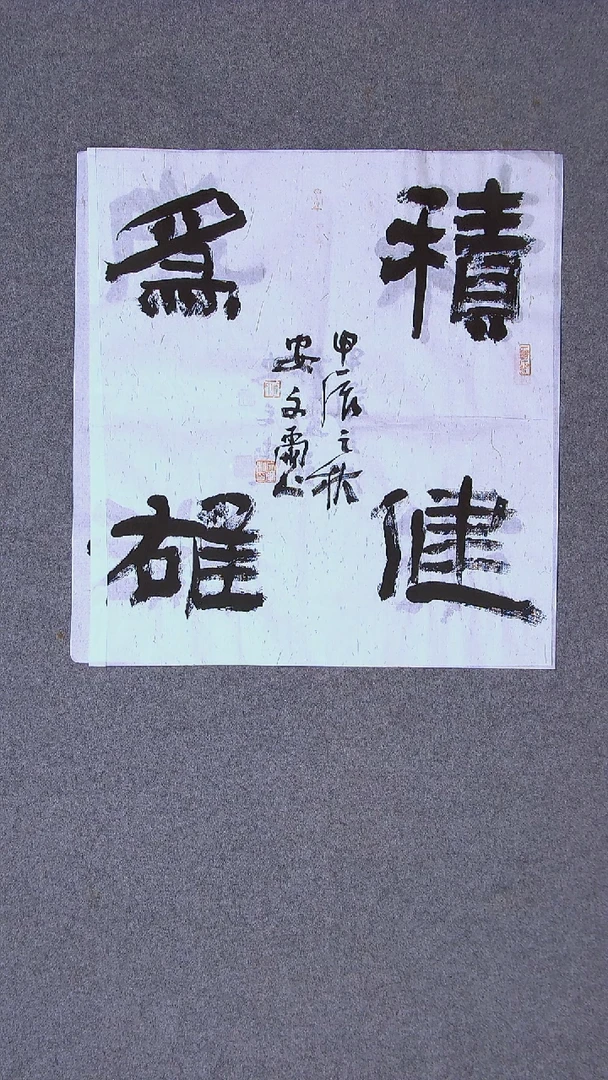 積健
為雄
甲辰之秋
安文爾书